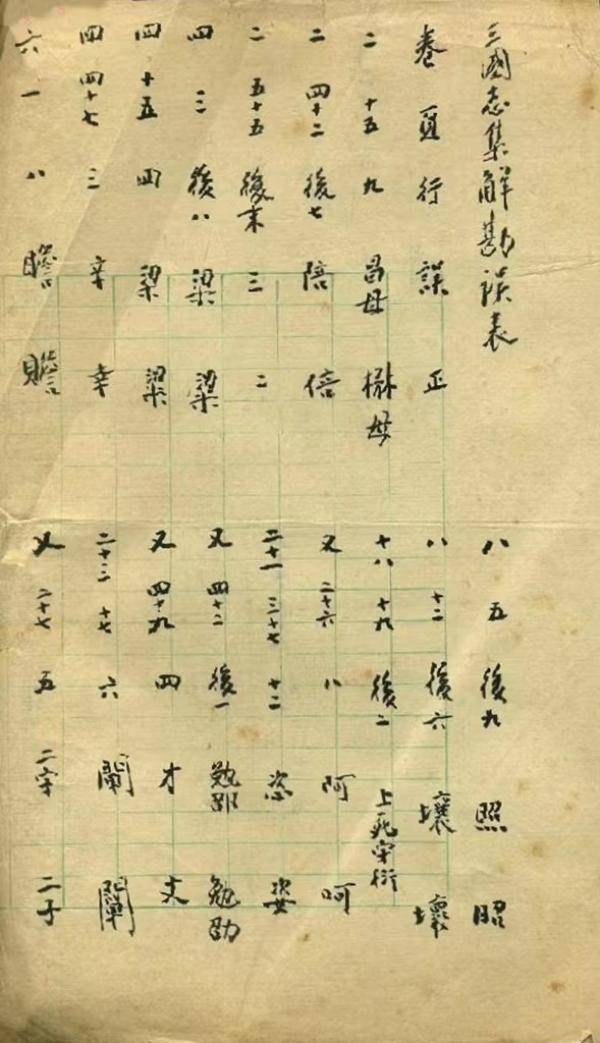 三國志集解勘誤表
卷 頁 行 誤 正
二 十五 九 昌母 𣚃母
二 四十二 後七 陪 倍
二 五十五 後末 三 二
四 三 後八 梁 梁
四 十五 四 梁 粱
四 四十七 三 辛 幸
六 一 八 瞻 贍
八 五 後九 照 昭
八 十二 後六 壤 壞
十八 十九 後二 上死字衍
又 二十六 八 阿 呵
二十一 三十七 十二 恣 姿
又 四十二 後一 勉 勉勖
又 四十九 四 才 丈
二十三 十七 六 闡
又 二十七 五 二字 二子